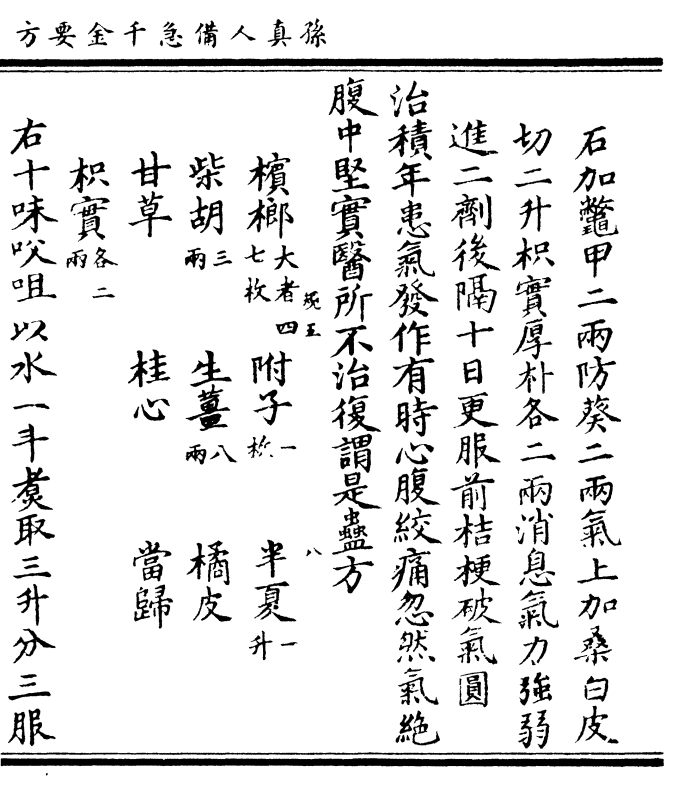 孫真人備急千金要方
石加鼈甲二兩防葵二兩氣上加桑白皮
切二升枳實厚朴各二兩消息氣力強弱
進二劑後隔十日更服前桔梗破氣圓
治積年患氣發作有時心腹絞痛忽然氣絶
腹中堅實醫所不治復謂是蠱方
檳榔大者四七枚 附子一枚 半夏一升
柴胡三兩 生薑八兩 橘皮
甘草 桂心 當歸
枳實各二兩
右十味㕮咀以水一斗煑取三升分三服
八